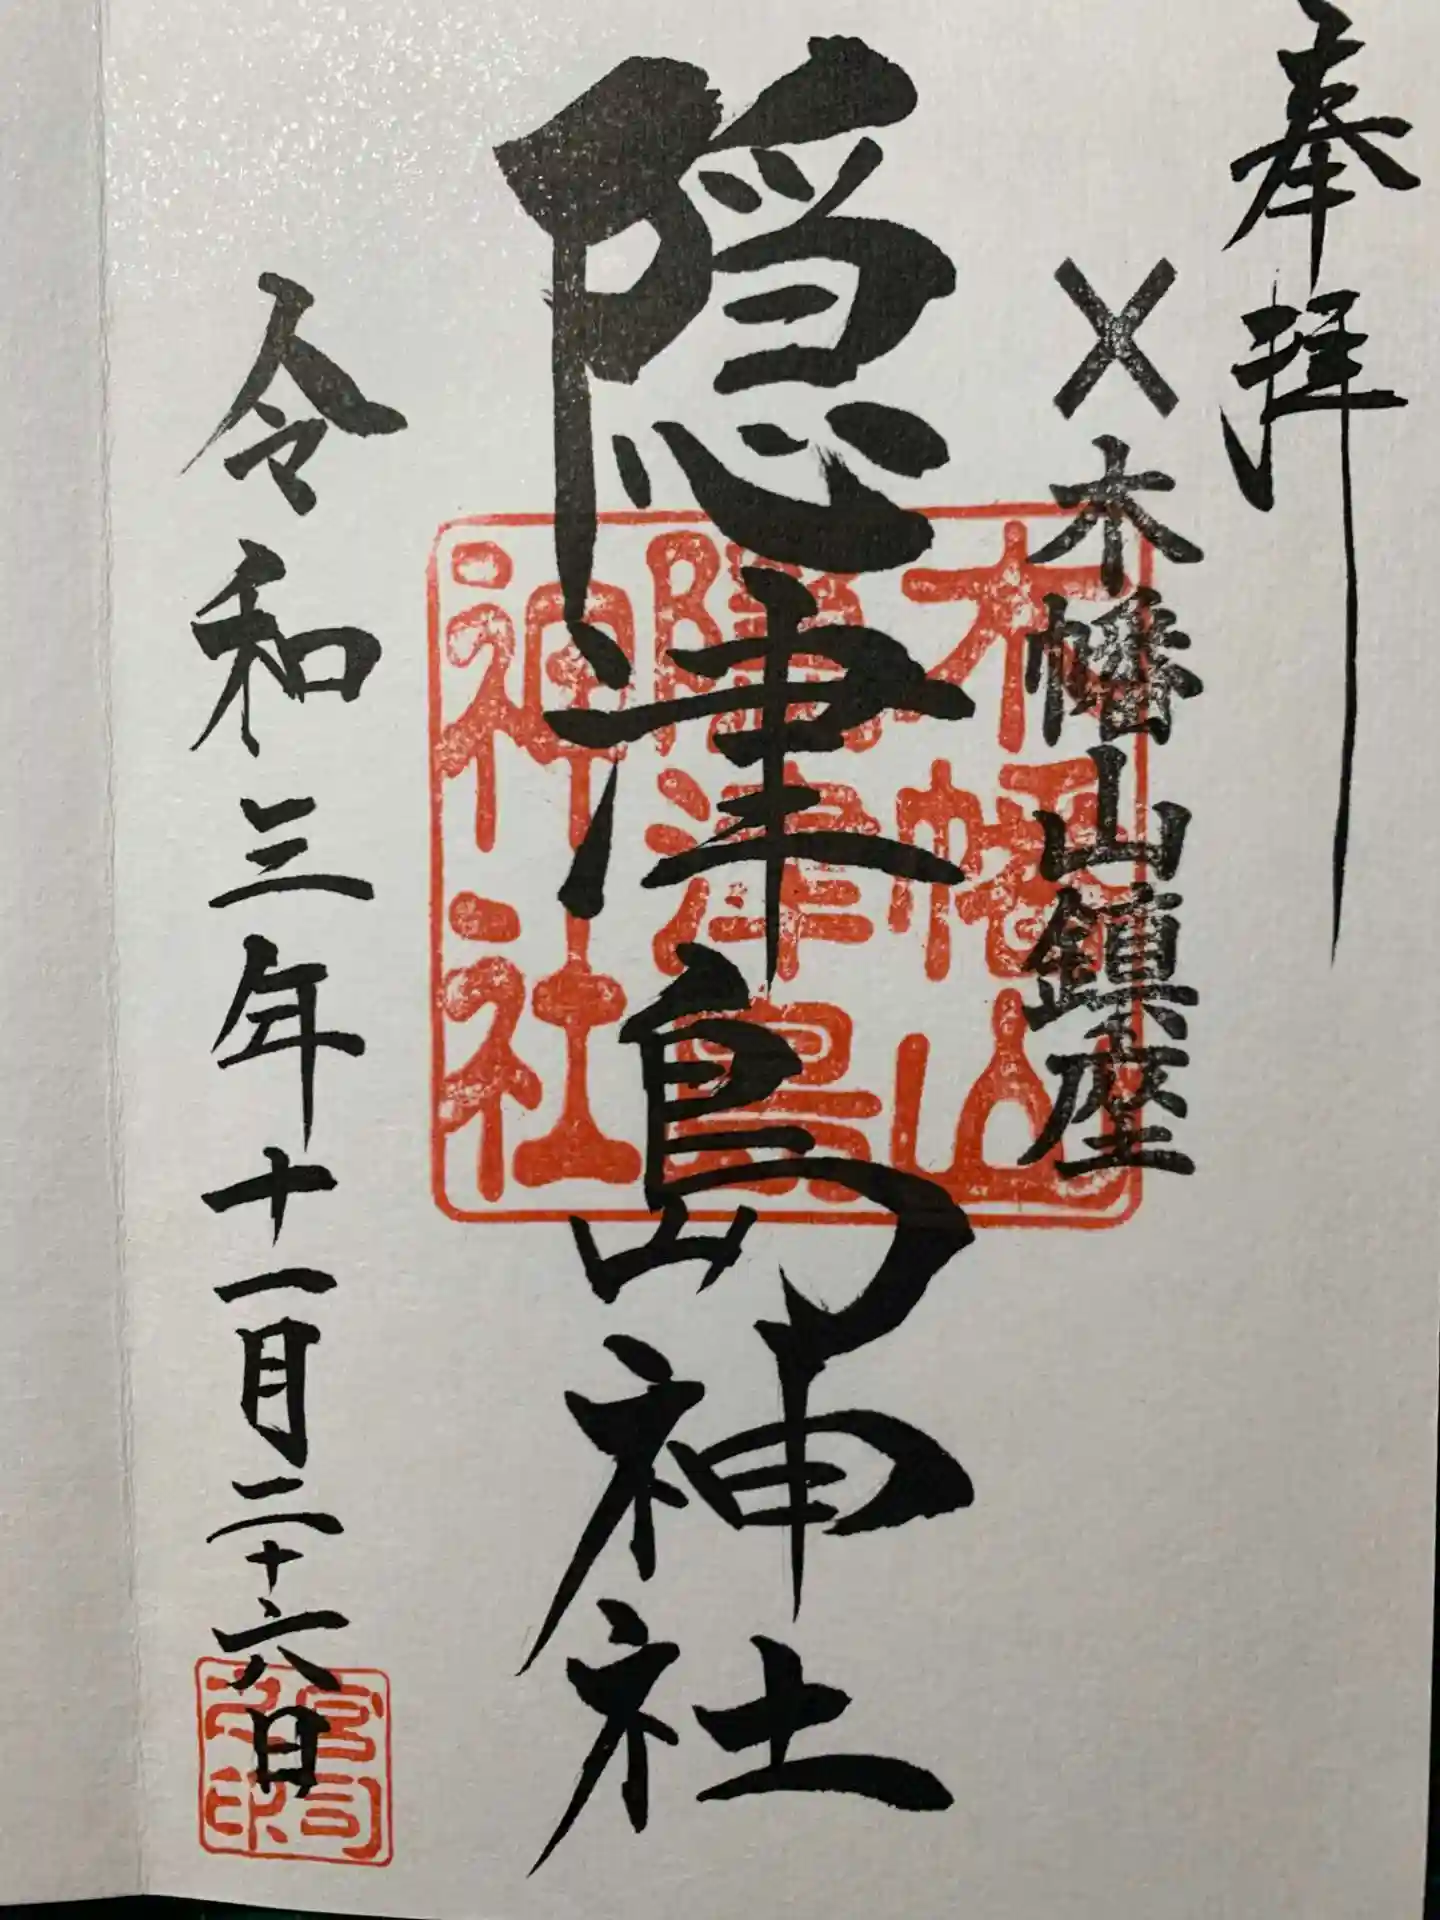 奉拝
×木幡山鎮座
木幡山
隠津島
神社
隠津島神社
令和三年十一月二十六日
宮司
之印